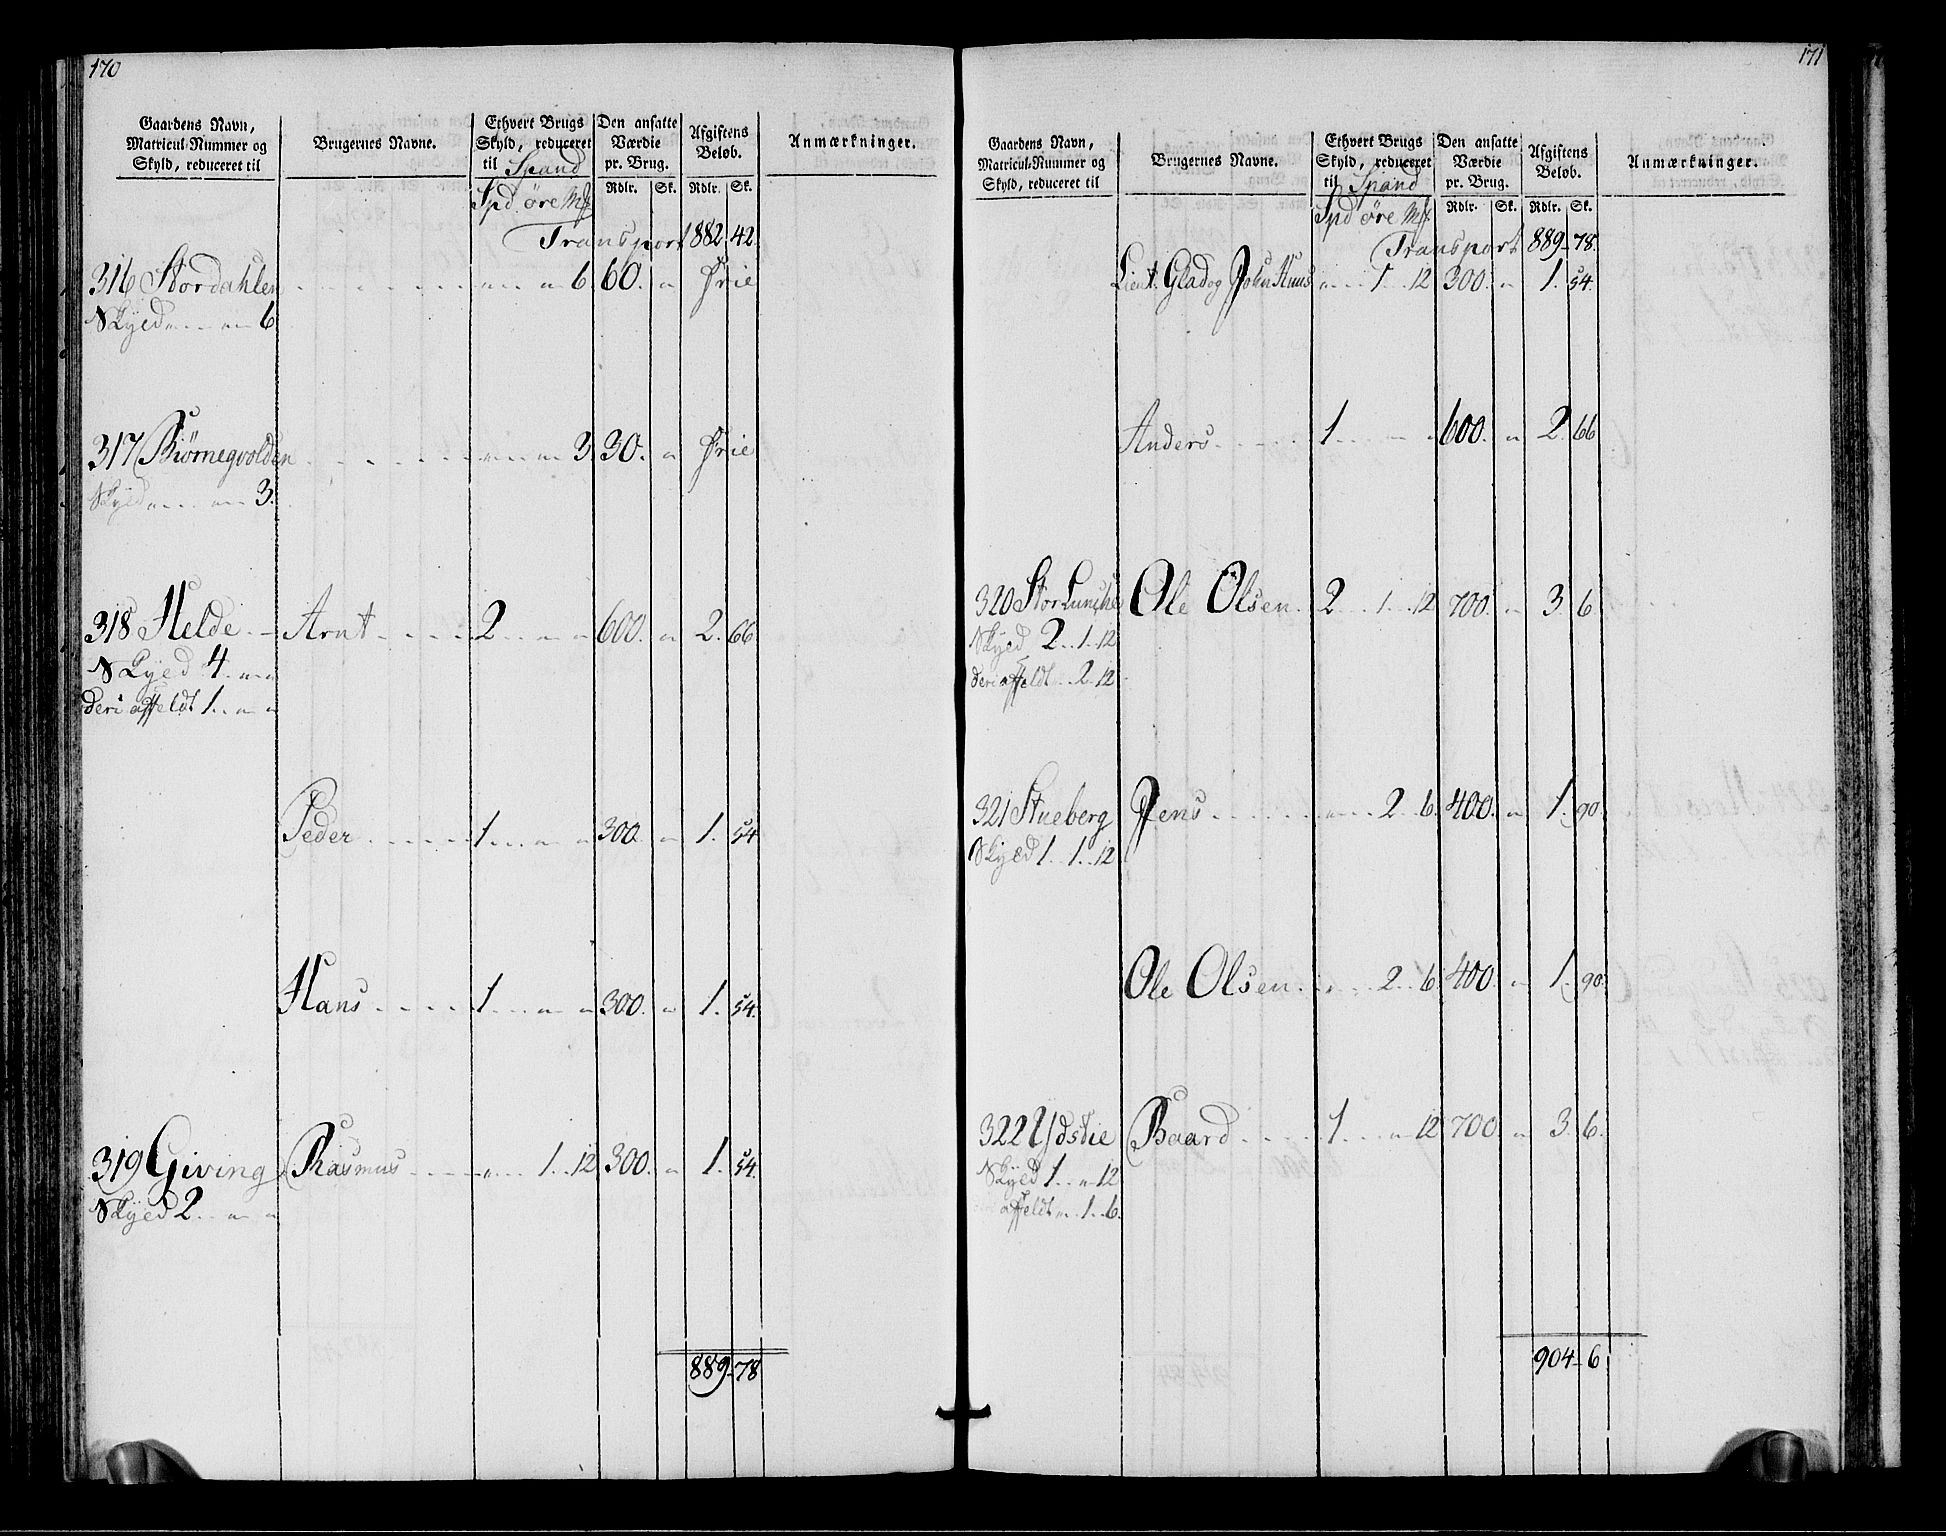 170
Gaardens Navn,
Matricul-Nummer og
Skyld, reduceret til
Brugernes Navne.
Ethvert Brugs
Skyld, reduceret
til Spand
Den ansatte
Værdie
pr. Brug.
Afgiftens
Beløb.
Anmærkninger.
Spd øre Mk
Rdlr. Sk. Rdlr. Sk.
Transport 882. 42.
316 Stordahlen 6 60. Frie
Skyld 6
317 Biørnegvolden 3. 30. Frie
Skyld 3.
318 Helde Arnt 2 600. 2. 66.
Skyld 4
deri affeldt 1
Peder 1 300. 1. 54
Hans 1 300. 1. 54.
319 Giving Rasmus 1 12 300. 1. 54.
Skyld 2
889 78
171
Gaardens Navn,
Matricul-Nummer og
Skyld, reduceret til
Brugernes Navne.
Ethvert Brugs
Skyld, reduceret
til Spand
Den ansatte
Værdie
pr. Brug.
Afgiftens
Beløb.
Anmærkninger.
Spd øre Mk
Rdlr. Sk. Rdlr. Sk.
Transport 889 78.
Lieut. Glad og John Huus 1 12 300. 1. 54.
Anders 1 600. 2. 66
320 Stor Ole Olsen. 2 1 12 700. 3. 6.
Skyld 2 1 12
deri affeldt 2 12
321 Stueberg Jens 2 6. 400. 1. 90.
Skyld 1 1 12
Ole Olsen. 2 6. 400. 1. 90.
322 Ydstie Baard 1 12 700 3. 6.
Skyld 1 12
affeldt 1 6.
904 6